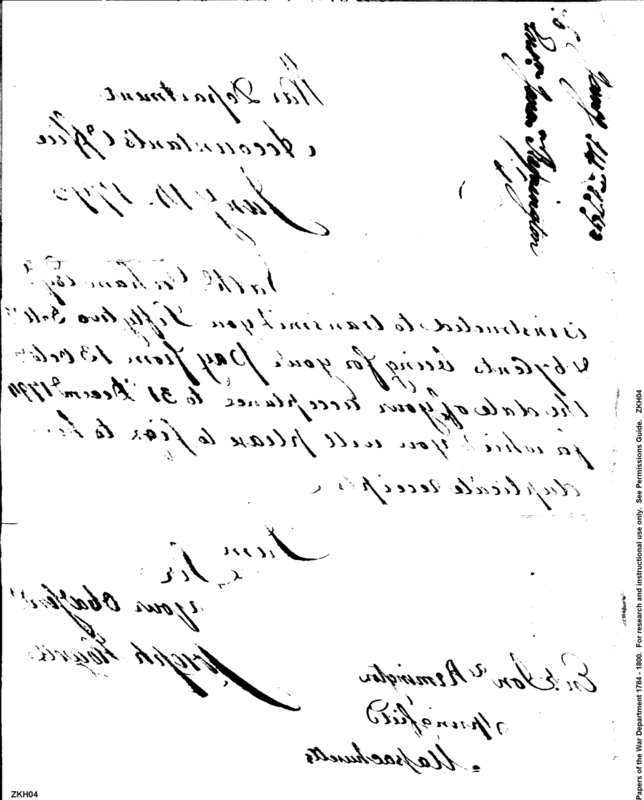 War Department
Accountant's Office
Jany 14. 1795
Nathl Gorham Esqr
is instructed to transmit you Fifty two Dolls
& Cents being for your pay from 13 Octor
the date of your acceptance to 31 Decemr 1794
for which you will please to sign to him
duplicate receipts
I am
Sir
Your Obd Serv
Joseph Howell
En Jona Remington
Springfield
Massachusetts
To
Jona Remington
Jany 14 1795
Papers of the War Department 1784 - 1800. For research and instructional use only. See Permissions Guide. ZKH04
ZKH04